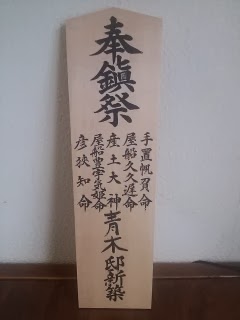 奉鎭祭
手置帆負命
屋船久久遅命
産土大神
屋船豊宇気姫命
彦狭知命
青木邸新築